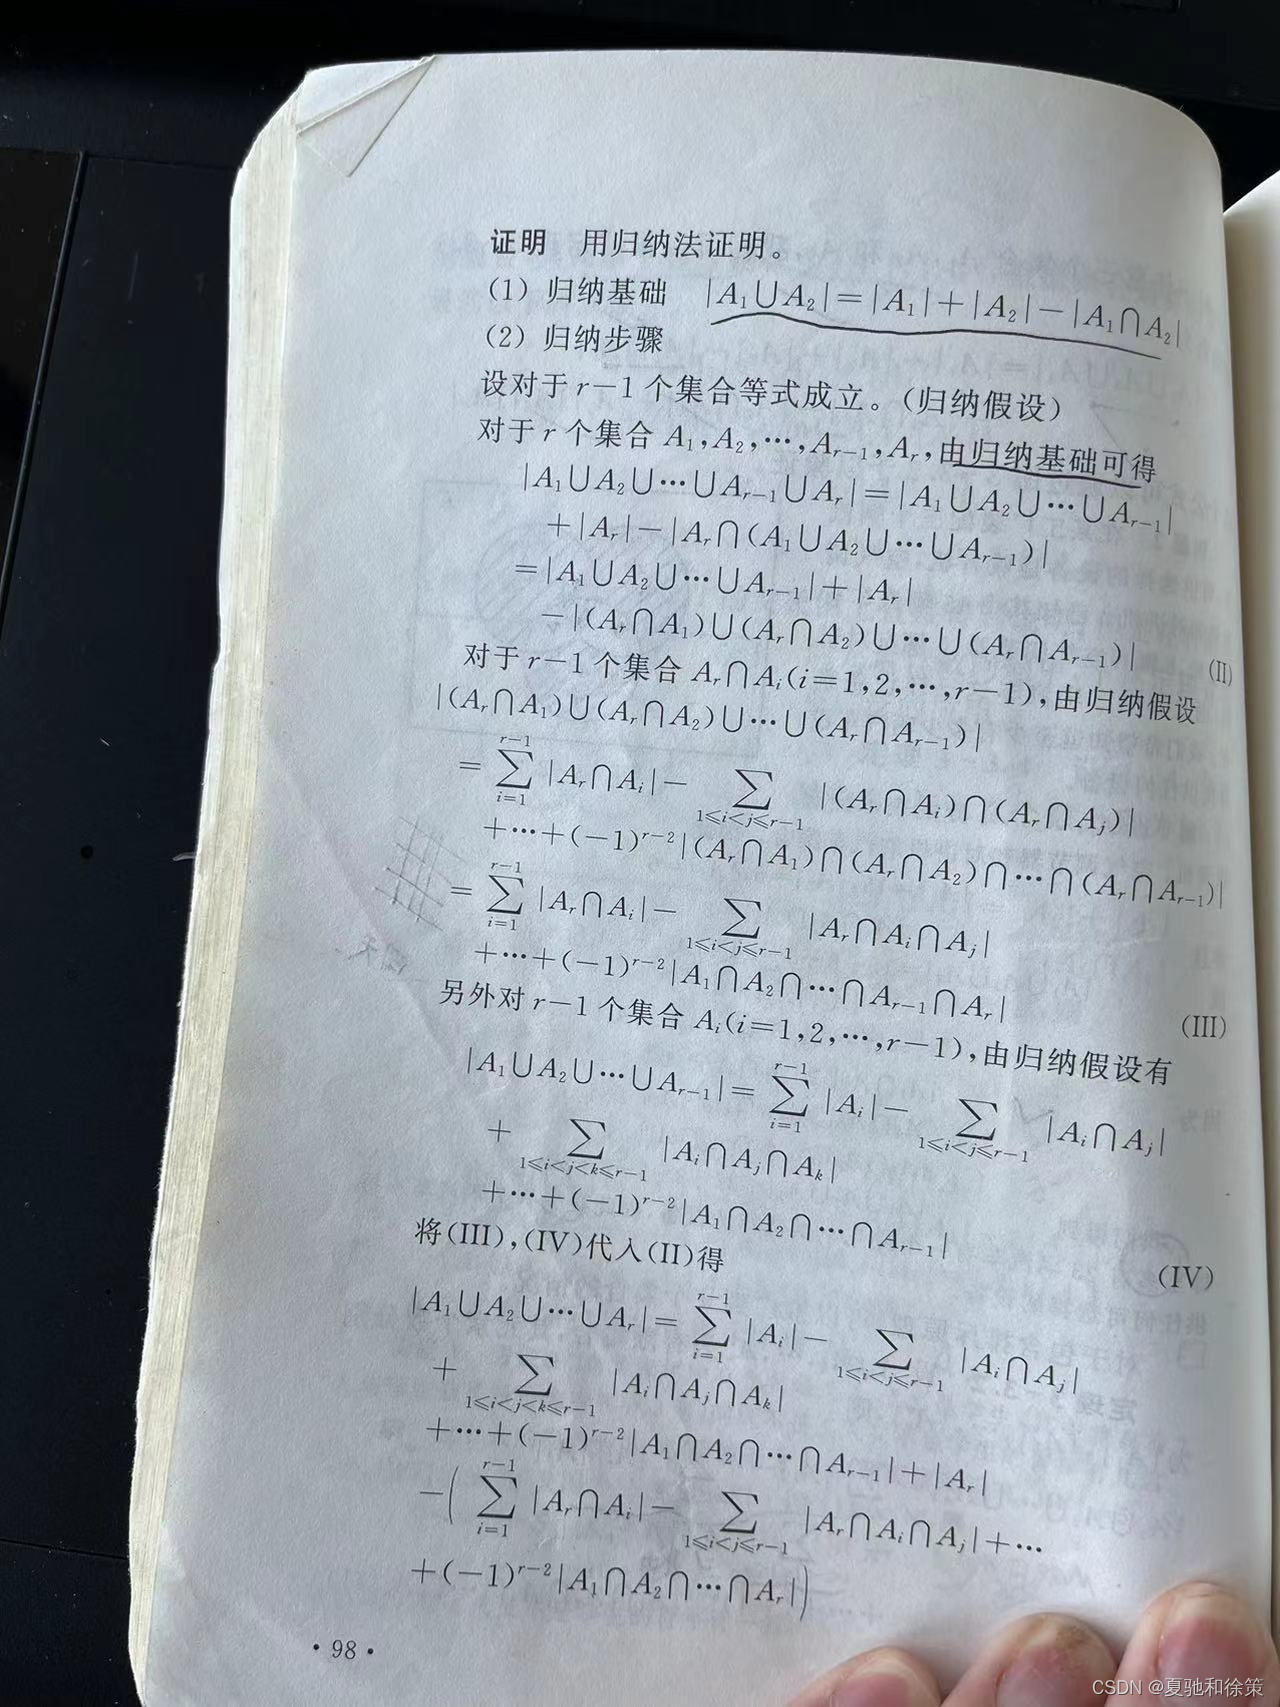 证明 用归纳法证明。
(1) 归纳基础 |A₁∪A₂|=|A₁|+|A₂|−|A₁∩A₂|
(2) 归纳步骤
设对于 r−1 个集合等式成立。(归纳假设)
对于 r 个集合 A₁,A₂,⋯,Aᵣ₋₁,Aᵣ,由归纳基础可得
|A₁∪A₂∪⋯∪Aᵣ₋₁∪Aᵣ|=|A₁∪A₂∪⋯∪Aᵣ₋₁|
+|Aᵣ|−|Aᵣ∩(A₁∪A₂∪⋯∪Aᵣ₋₁)|
=|A₁∪A₂∪⋯∪Aᵣ₋₁|+|Aᵣ|
−|(Aᵣ∩A₁)∪(Aᵣ∩A₂)∪⋯∪(Aᵣ∩Aᵣ₋₁)| (II)
对于 r−1 个集合 Aᵣ∩Aᵢ(i=1,2,⋯,r−1),由归纳假设
|(Aᵣ∩A₁)∪(Aᵣ∩A₂)∪⋯∪(Aᵣ∩Aᵣ₋₁)|
=∑_{i=1}^{r−1}|Aᵣ∩Aᵢ|−∑_{1≤i<j≤r−1}|(Aᵣ∩Aᵢ)∩(Aᵣ∩Aⱼ)|
+⋯+(−1)^{r−2}|(Aᵣ∩A₁)∩(Aᵣ∩A₂)∩⋯∩(Aᵣ∩Aᵣ₋₁)|
=∑_{i=1}^{r−1}|Aᵣ∩Aᵢ|−∑_{1≤i<j≤r−1}|Aᵣ∩Aᵢ∩Aⱼ|
+⋯+(−1)^{r−2}|A₁∩A₂∩⋯∩Aᵣ₋₁∩Aᵣ| (III)
另外对 r−1 个集合 Aᵢ(i=1,2,⋯,r−1),由归纳假设有
|A₁∪A₂∪⋯∪Aᵣ₋₁|=∑_{i=1}^{r−1}|Aᵢ|−∑_{1≤i<j≤r−1}|Aᵢ∩Aⱼ|
+∑_{1≤i<j<k≤r−1}|Aᵢ∩Aⱼ∩Aₖ|
+⋯+(−1)^{r−2}|A₁∩A₂∩⋯∩Aᵣ₋₁| (IV)
将(III),(IV)代入(II)得
|A₁∪A₂∪⋯∪Aᵣ|=∑_{i=1}^{r−1}|Aᵢ|−∑_{1≤i<j≤r−1}|Aᵢ∩Aⱼ|
+∑_{1≤i<j<k≤r−1}|Aᵢ∩Aⱼ∩Aₖ|
+⋯+(−1)^{r−2}|A₁∩A₂∩⋯∩Aᵣ₋₁|+|Aᵣ|
−(∑_{i=1}^{r−1}|Aᵣ∩Aᵢ|−∑_{1≤i<j≤r−1}|Aᵣ∩Aᵢ∩Aⱼ|+⋯
+(−1)^{r−2}|A₁∩A₂∩⋯∩Aᵣ|)
·98·
CSDN @夏驰和徐策